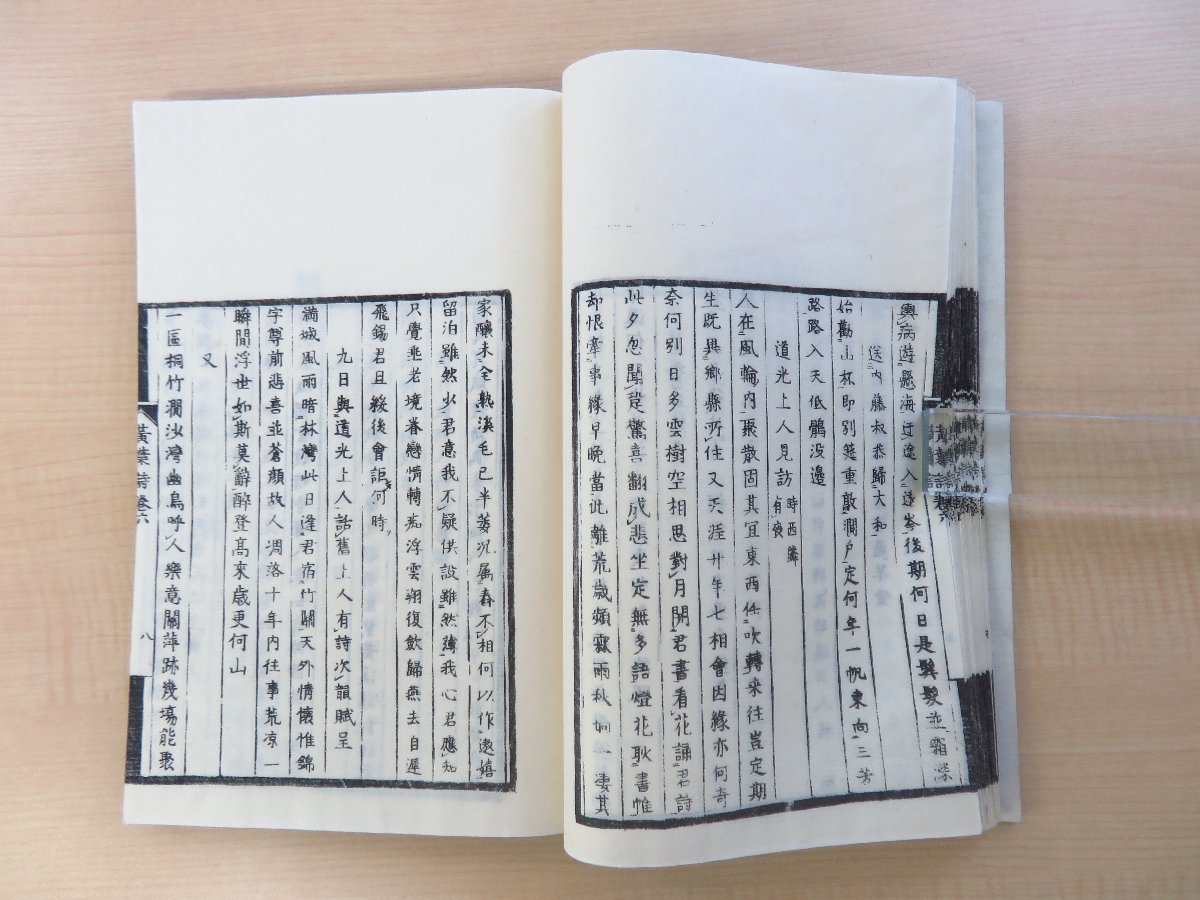 輿病遊懸海 途入 岑後期何日是鬂髮並霜深
送内藤叔恭歸大和
始勸山杯即別筵重敲澗户定何年一帆東向三芳
路路入天低鶻没邊
道光上人見訪 時西隣有喪
人在風輪内聚散固其宜東西任吹轉來往豈定期
生既異鄉縣所住又天涯廿年七相會因緣亦何奇
奈何別日多雲樹空相思對月開君書看花誦君詩
此夕忽聞跫驚喜翻成悲坐定無多語燈花耿書帷
却恨牽事緣早晚當此離荒歳頻霖雨秋如一凄其
家釀未全熟溪毛已半萎况属舂不相何以作遨嬉
留泊雖然少君意我不疑供設雖然薄我心君應知
只覺垂老境眷戀情轉痴浮雲翔復歛歸燕去自遲
飛錫君且緩後會詎何時
九日與道光上人話舊上人有詩次韻賦呈
滿城風雨暗林灣此日逢君宿竹關天外情懷惟錦
字尊前悲喜並蒼顔故人凋落十年内往事荒凉一
瞬間浮世如斯莫辭醉登高來歳更何山
又
一區桐竹澗沙灣幽鳥呼人樂意關萍跡幾場能聚
黄葉詩卷六
八